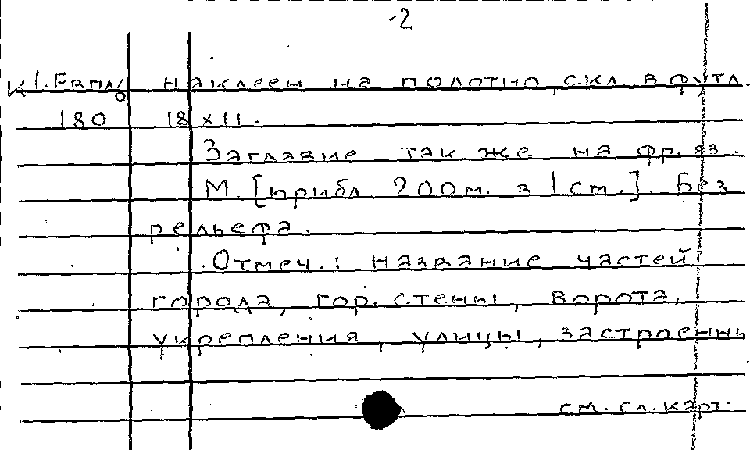 -2
К1.Евпл/о Наклеен на полотно, скл. в футл.
180 18 x 11.
Заглавие также на фр. яз.
М. [прибл. 200м. в 1 см.]. Без
рельефа.
Отмеч.: название частей
города, гор. стены, ворота,
укрепления, улицы, застроенны
см. сл. карт.